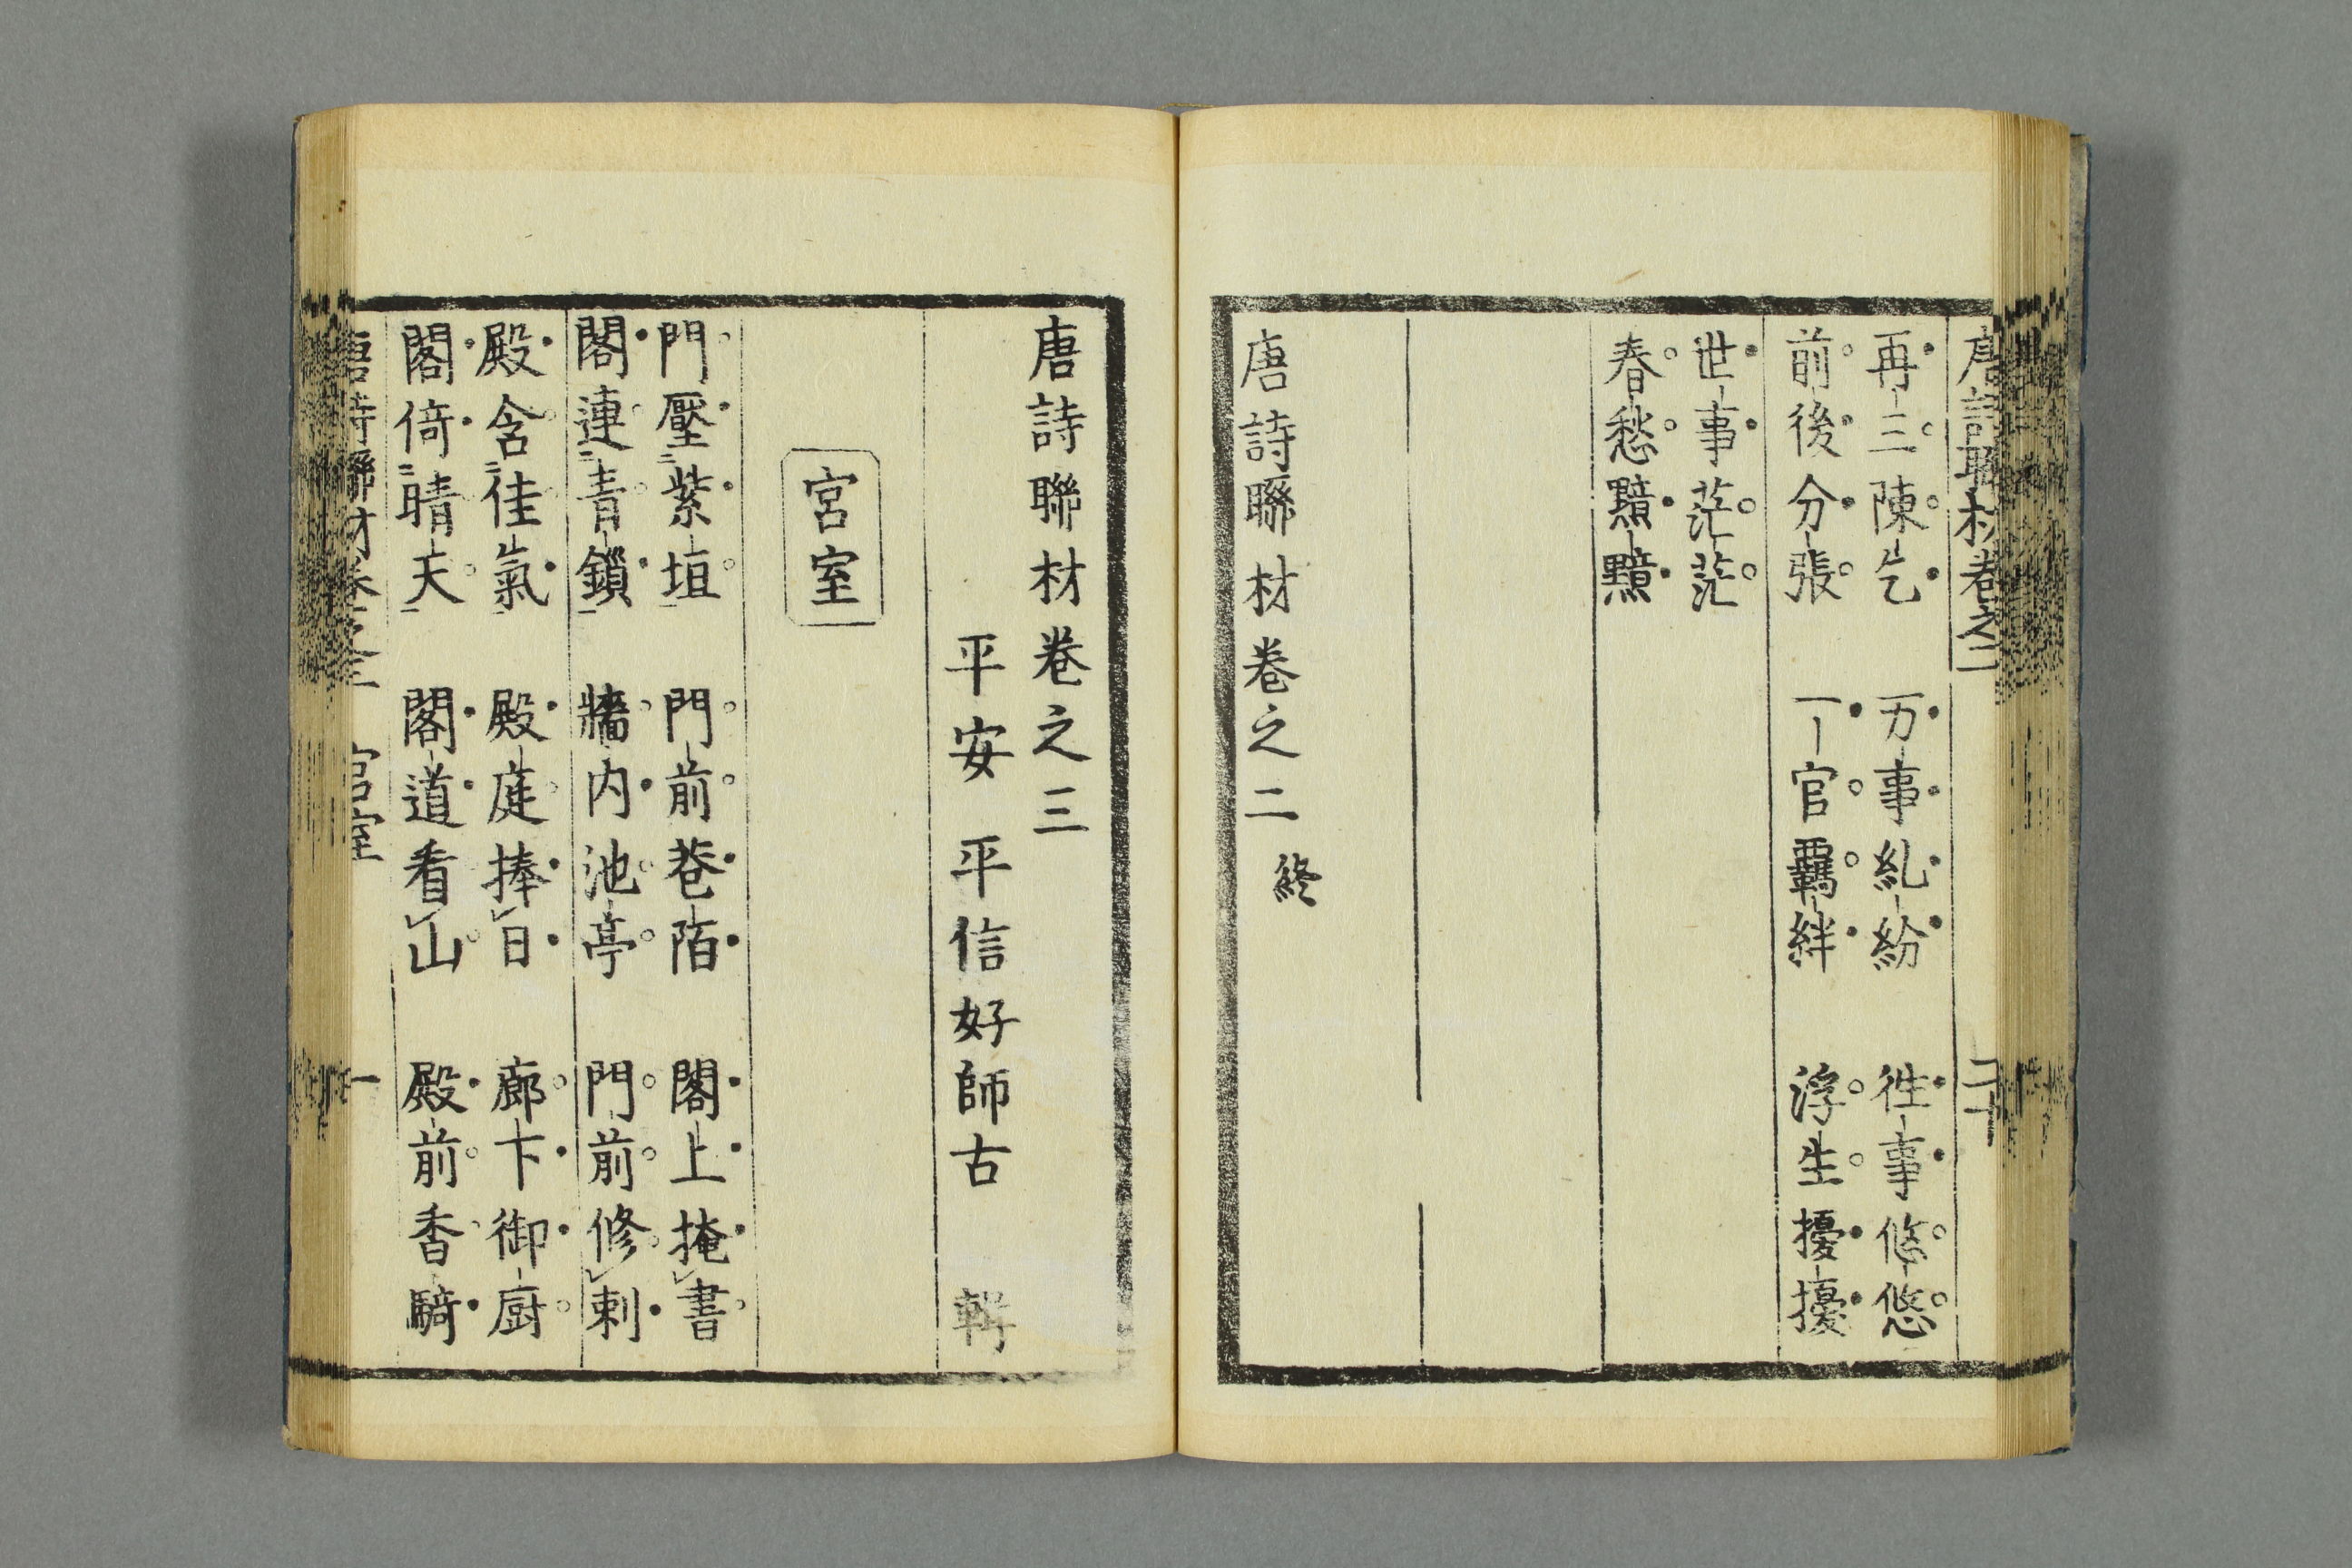 唐詩聯材卷之二 二十
再三陳乞 万事糺紛 徃事悠悠
前後分張 一官羈絆 浮生擾擾
世事茫茫
春愁黯黯
唐詩聯材卷之二 終
唐詩聯材卷之三
平安 平信好師古 輯
宮室
門壓紫垣 門前巷陌 閣上掩書
閣連青鎖 牆内池亭 門前修刺
殿含佳氣 殿庭捧日 廊下御厨
閣倚晴天 閣道看山 殿前香騎
唐詩聯材卷之三 宮室 一